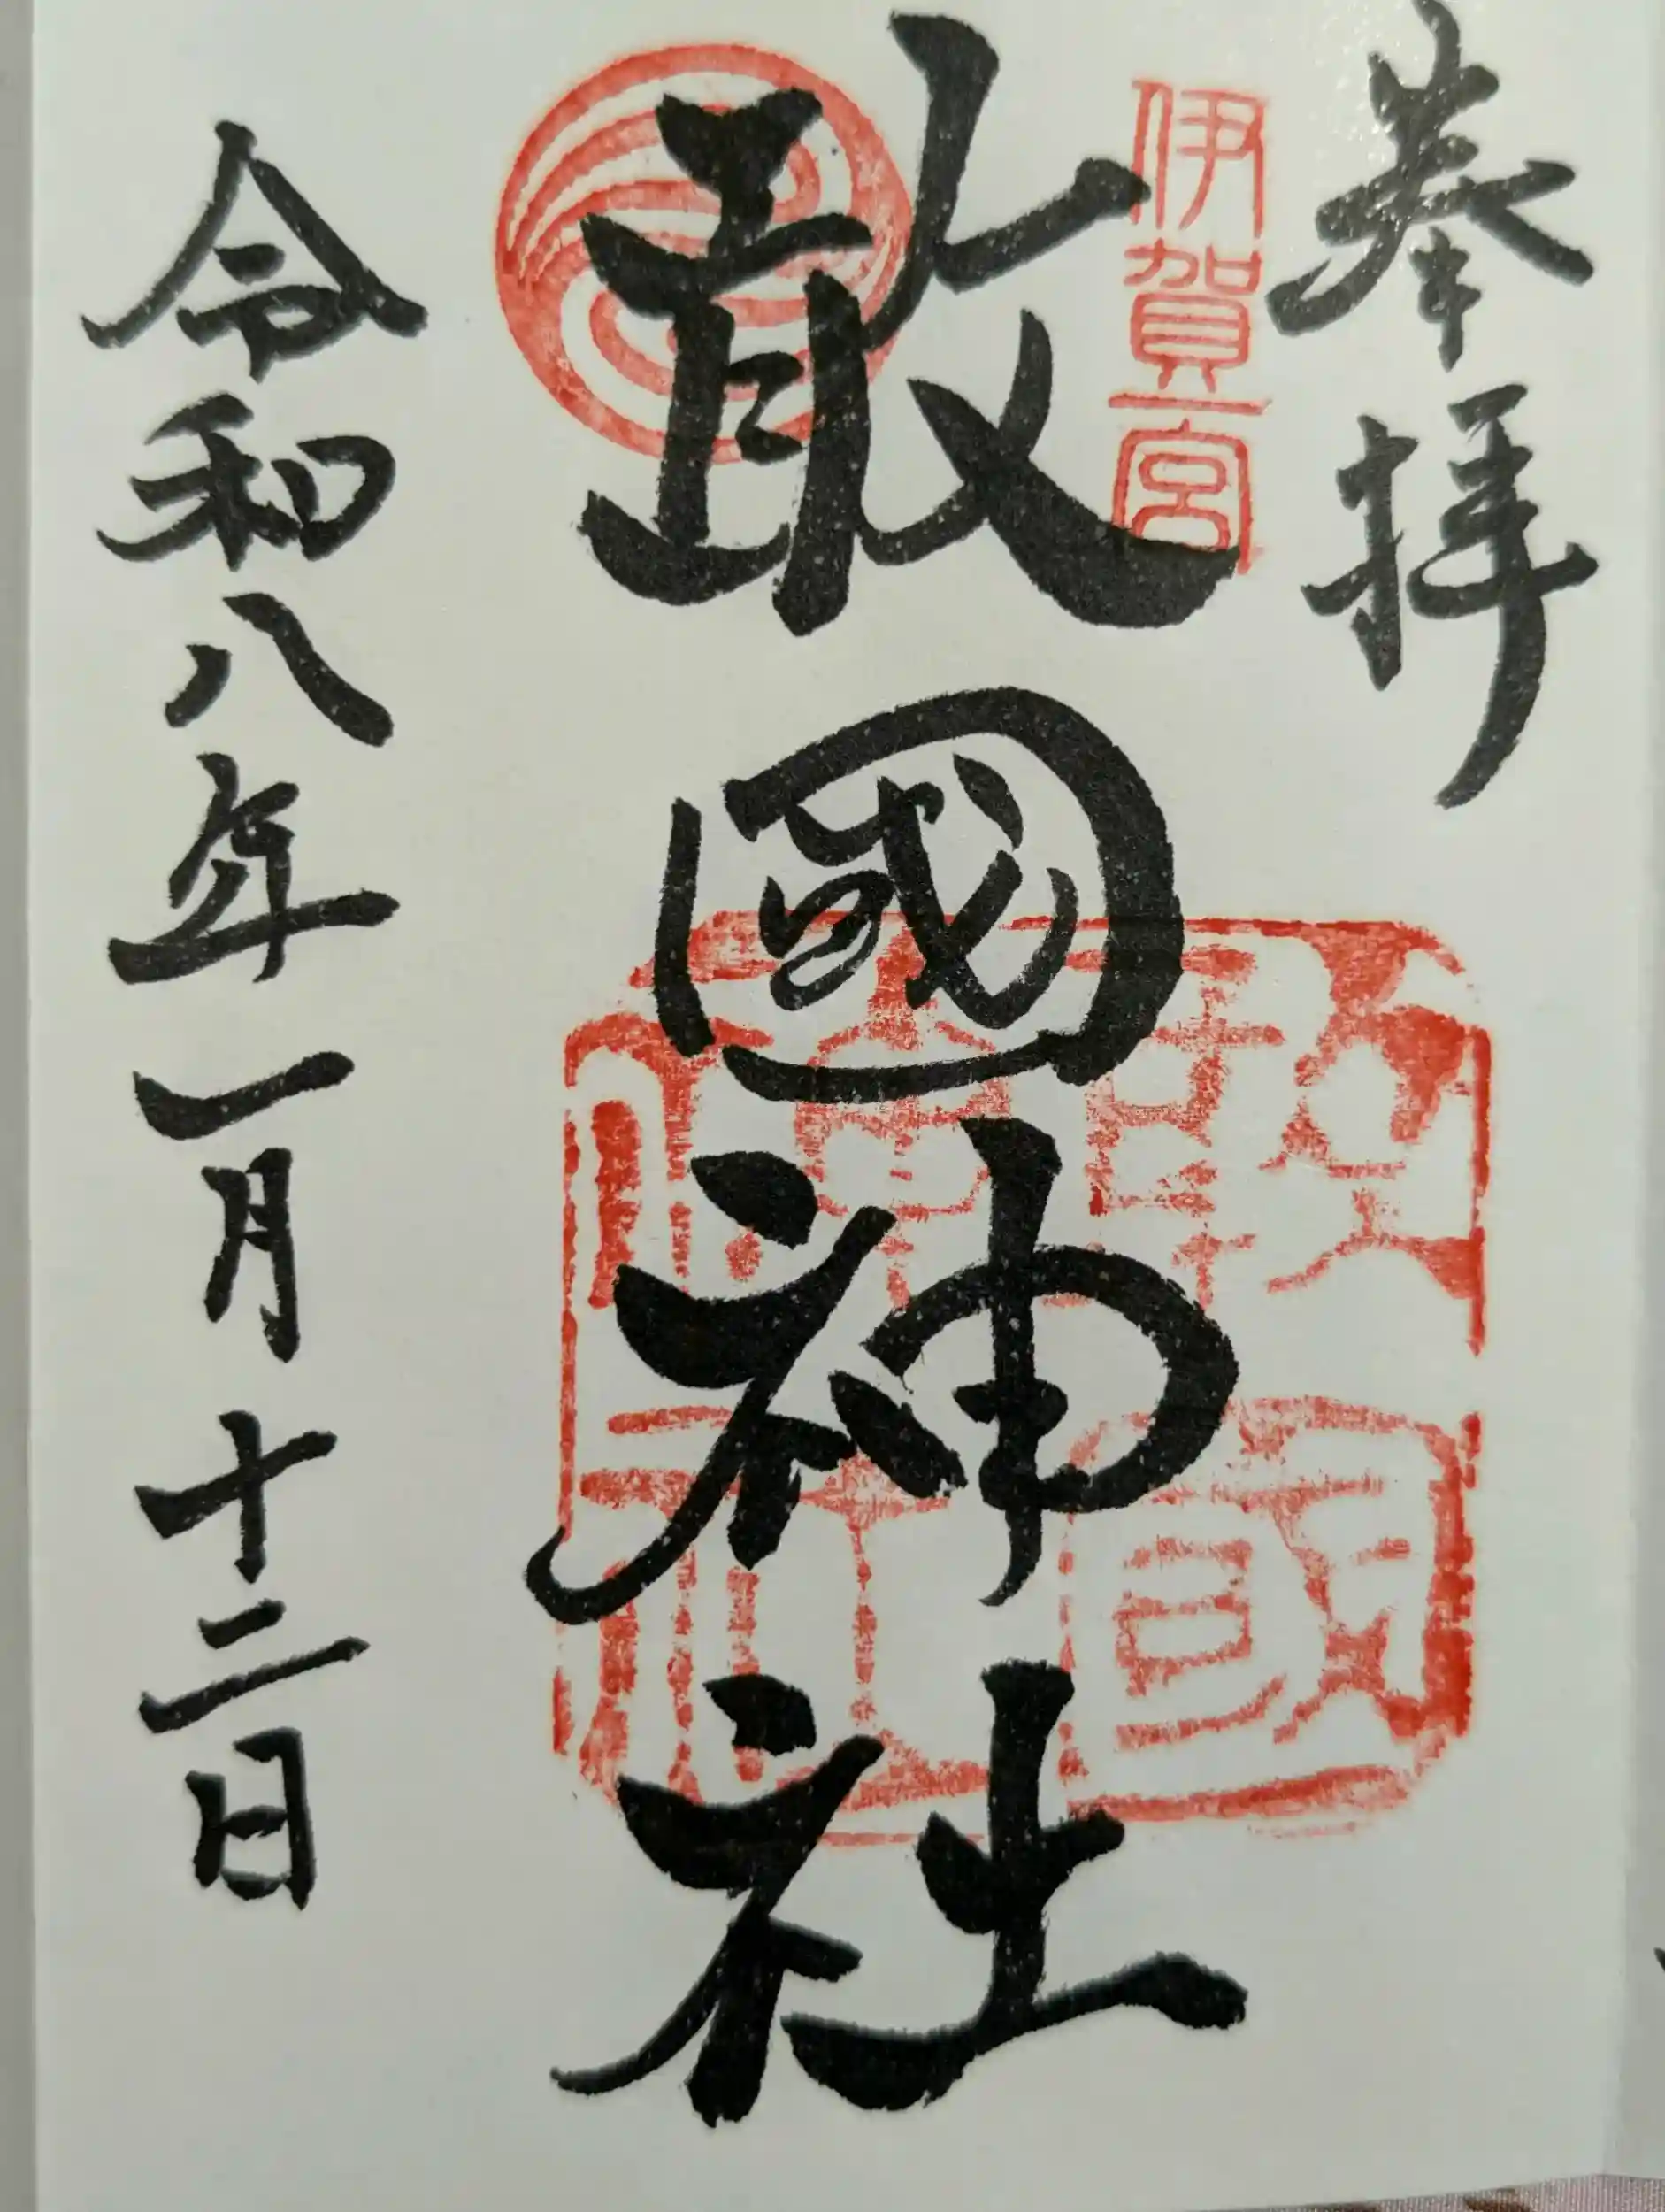 奉拝
伊賀一宮
敢國神社
敢國
神社
令和八年一月十二日